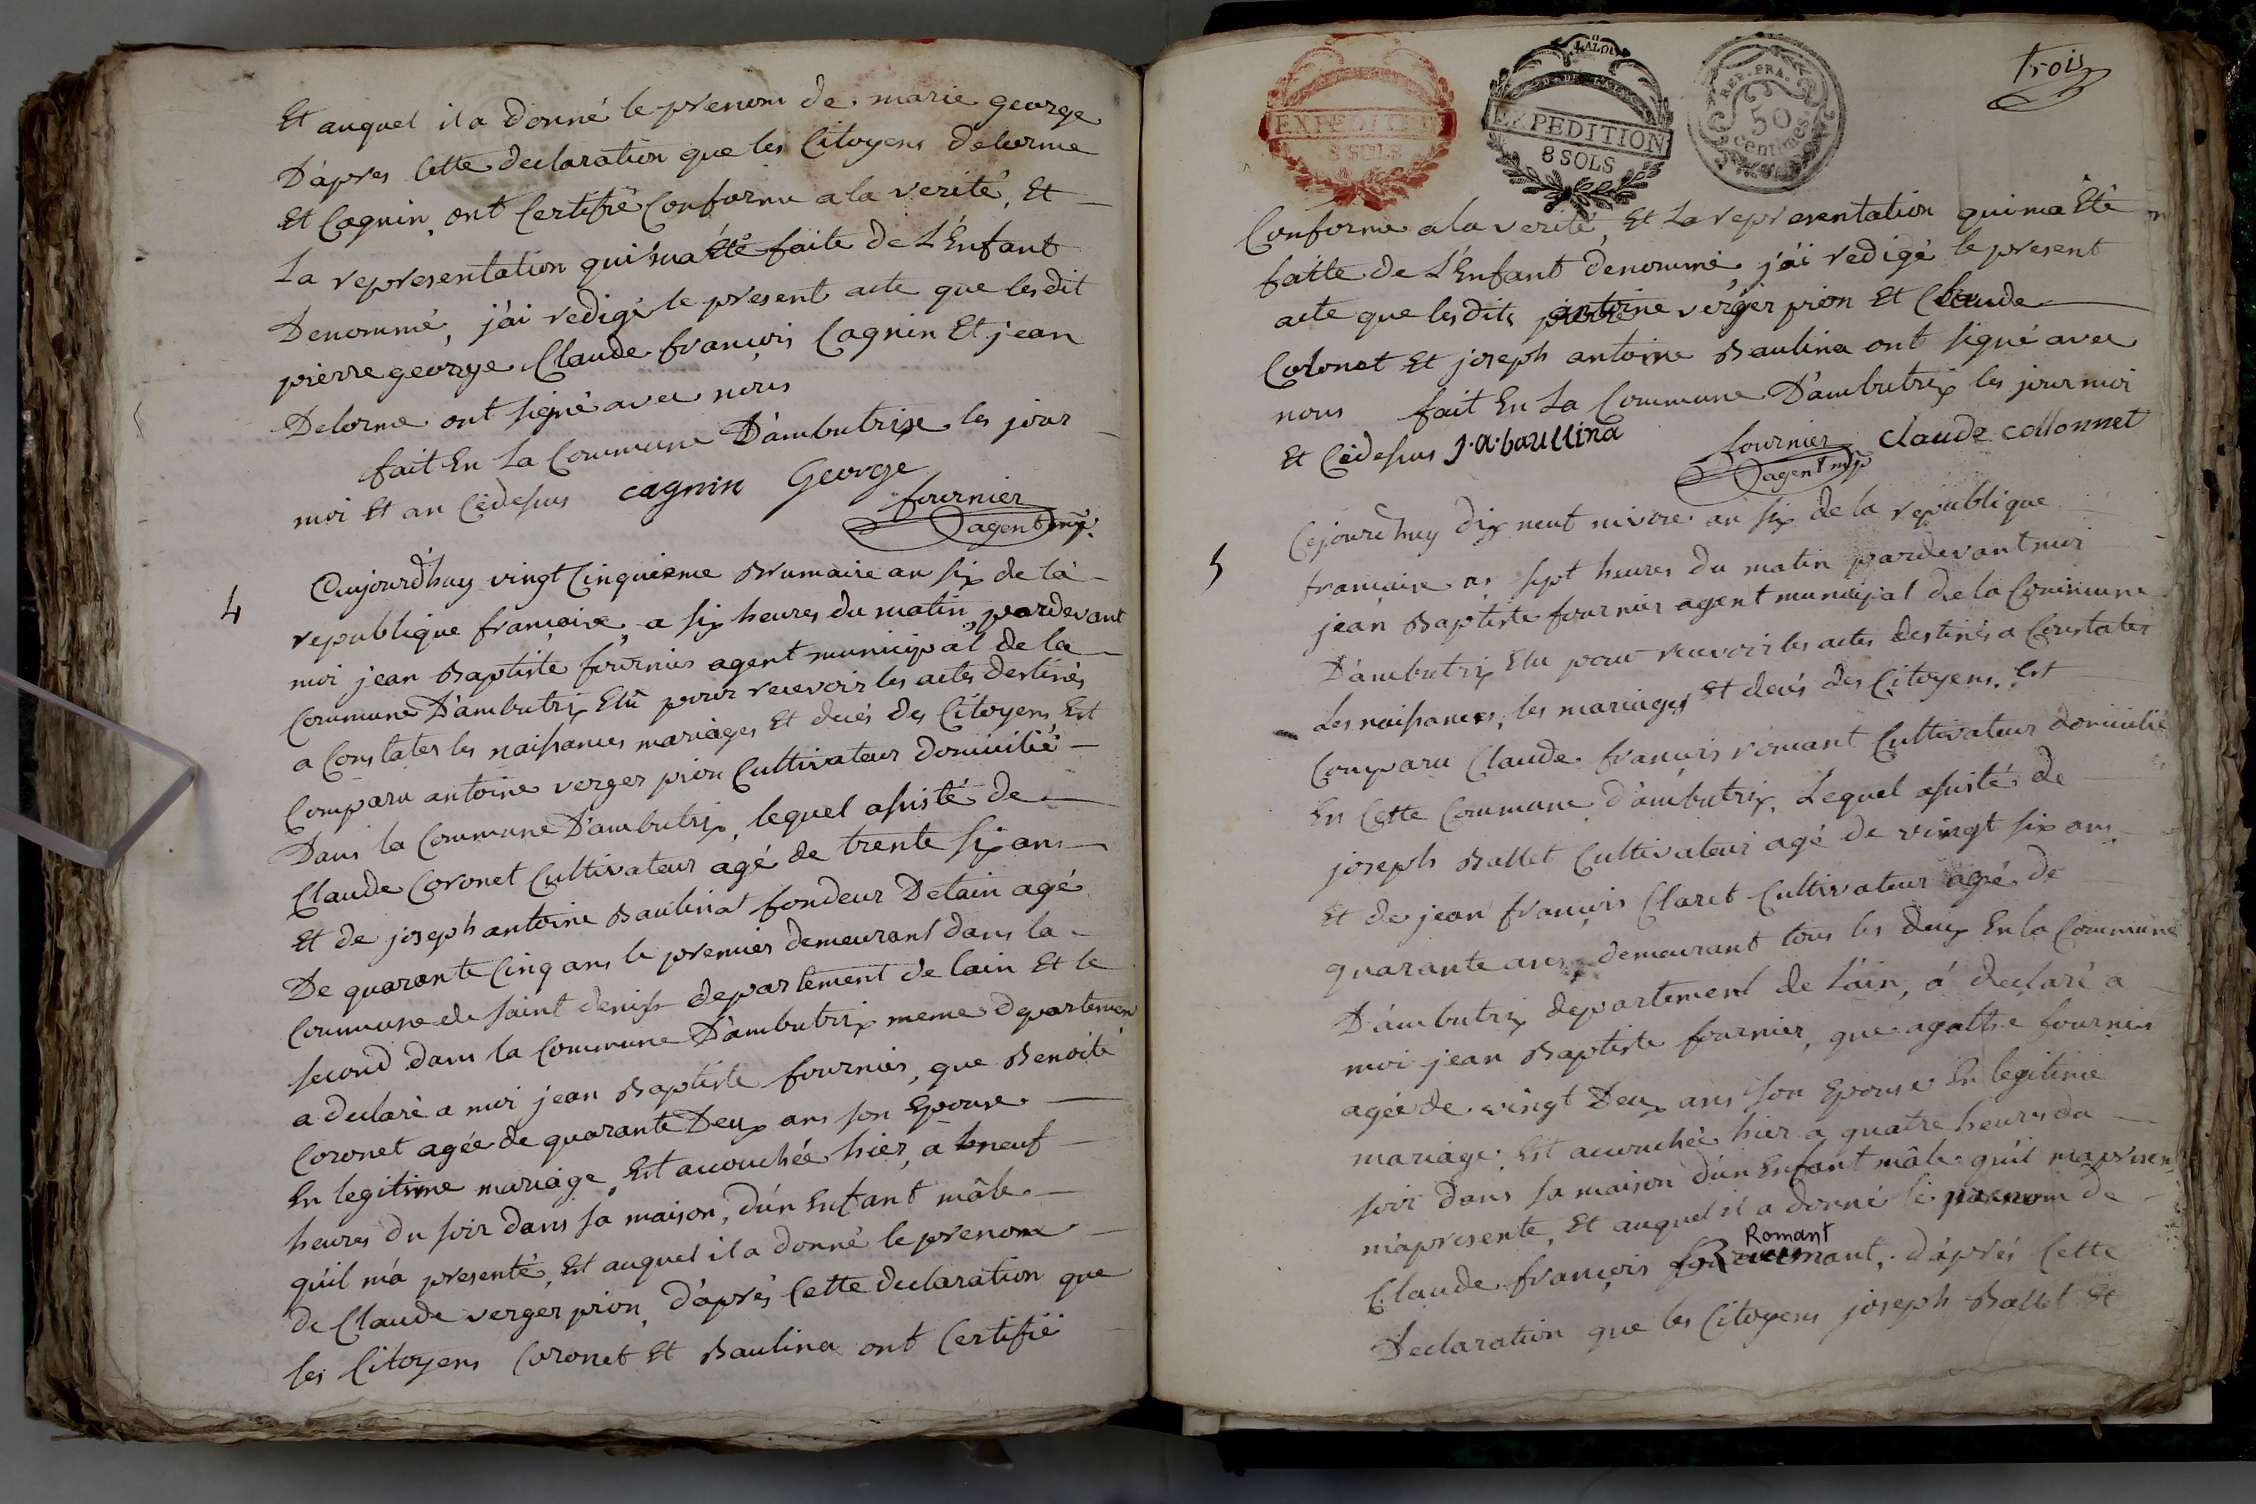 Et auquel il a donné le prenom de marie george
D'apres Cette declaration que les Citoyens delorme
Et Cagnin, ont Certifié Conforme a la verité, Et
La representation qui m'a Eté faite de L'Enfant
Denommé, j'ai redigé le present acte que lesdit
pierre george Claude françois Cagnin Et jean
Delorme ont signé avec nous
fait En La Commune D'ambutrix les jour
moi Et an Cèdessus cagnin George
fournier
agent mp.
4
Cejourd'huy vingt Cinquieme Brumaire an six de la
republique françoise, a six heures du matin, pardevant
moi jean Baptiste fournier agent municipal de la
Commune D'ambutrix Elû pour recevoir les actes destinés
a Constater les naissances mariages Et decés des Citoyens Est
Comparu antoine verger pion Cultivateur domicilié
Dans la Commune D'ambutrix, lequel assisté de
Claude Coronet Cultivateur agé de trente six ans
Et de joseph antoine Baulina fondeur Detain agé
De quarante Cinq ans le premier demeurant dans la
Commune de saint denis departement de lain Et le
second dans la Commune D'ambutrix meme departemen
a declaré a moi jean Baptiste fournier, que Benoité
Coronet agée de quarante Deux ans son Epouse
En legitime mariage, Est acouchée hier, a neuf
heures du soir dans sa maison, d'un Enfant mâle
qu'il m'a presenté, Et auquel il a donné le prenom
de Claude verger pion, d'aprés Cette declaration que
les Citoyens Coronet Et Baulina ont Certifié
trois
EXPEDITION
8 SOLS
LA LOI
EXPEDITION
8 SOLS
REP. FRA.
50
centimes
Conforme a la verité, Et La representation qui m'a Eté
faite de L'Enfant dénommé, j'ai redigé le present
acte que lesdits antoine verger pion Et Claude
Colonet Et joseph antoine Baulina ont signé avec
nous fait En La Commune D'ambutrix les jour moi
Et Cèdessus J.a.baullina fournier claude collonnet
agent mp
5
Cejourd'huy dix neuf nivose an six de la republique
françoise a sept heures du matin pardevant moi
jean Baptiste fournier agent municipal de la Commune
D'ambutrix Elu pour recevoir les actes destinés a Constater
Les naissances, les mariages Et decés des Citoyens, Est
Comparu Claude françois romant Cultivateur domicilié
En Cette Commune d'ambutrix, Lequel assisté de
joseph Ballet Cultivateur agé de vingt six ans
Et de jean françois Claret Cultivateur agé de
quarante ans, demeurant tous les deux En la Commune
D'ambutrix departement de L'ain, á declaré a
moi jean Baptiste fournier, que agathe fournier
agée de vingt Deux ans son Epouse En legitime
mariage, Est acouchée hier a quatre heures du
soir dans sa maison d'un Enfant mâle qu'il ma presen
m'a presenté, Et auquel il a donné le prenom de
Romant
Claude françois Romant, d'aprés Cette
Declaration que les Citoyens joseph Ballet Et